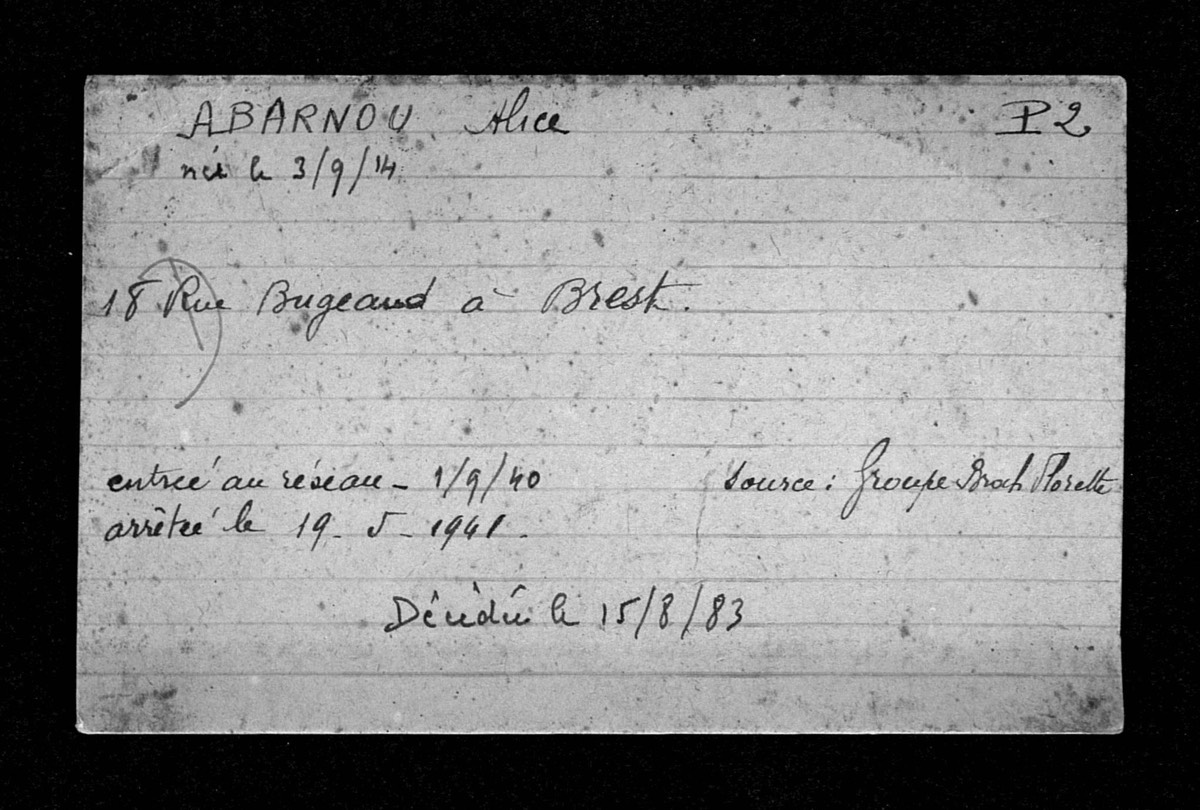 ABARNOU Alice P2
née le 3/9/14
18 Rue Bugeaud à Brest.
entrée au réseau - 1/9/40 source : Groupe
arrêtée le 19 - 5 - 1941.
Décédée le 15/8/83